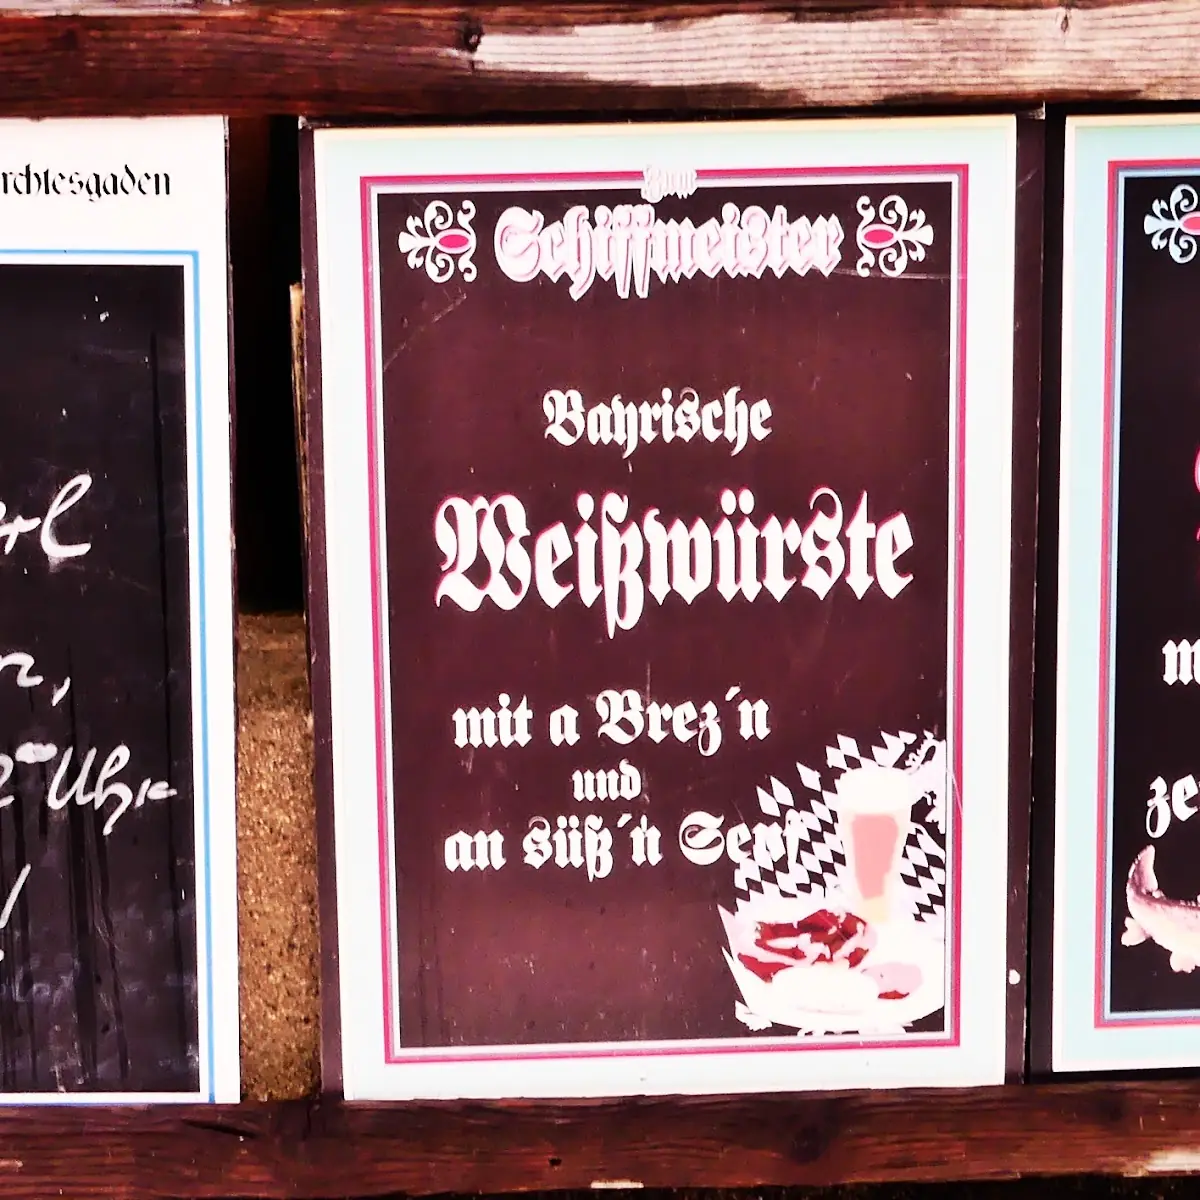 rchtesgaden
erl
n,
Uhr
Zum
Schiffmeister
Bayrische
Weißwürste
mit a Brez´n
und
an süß´n Senf
m
ze